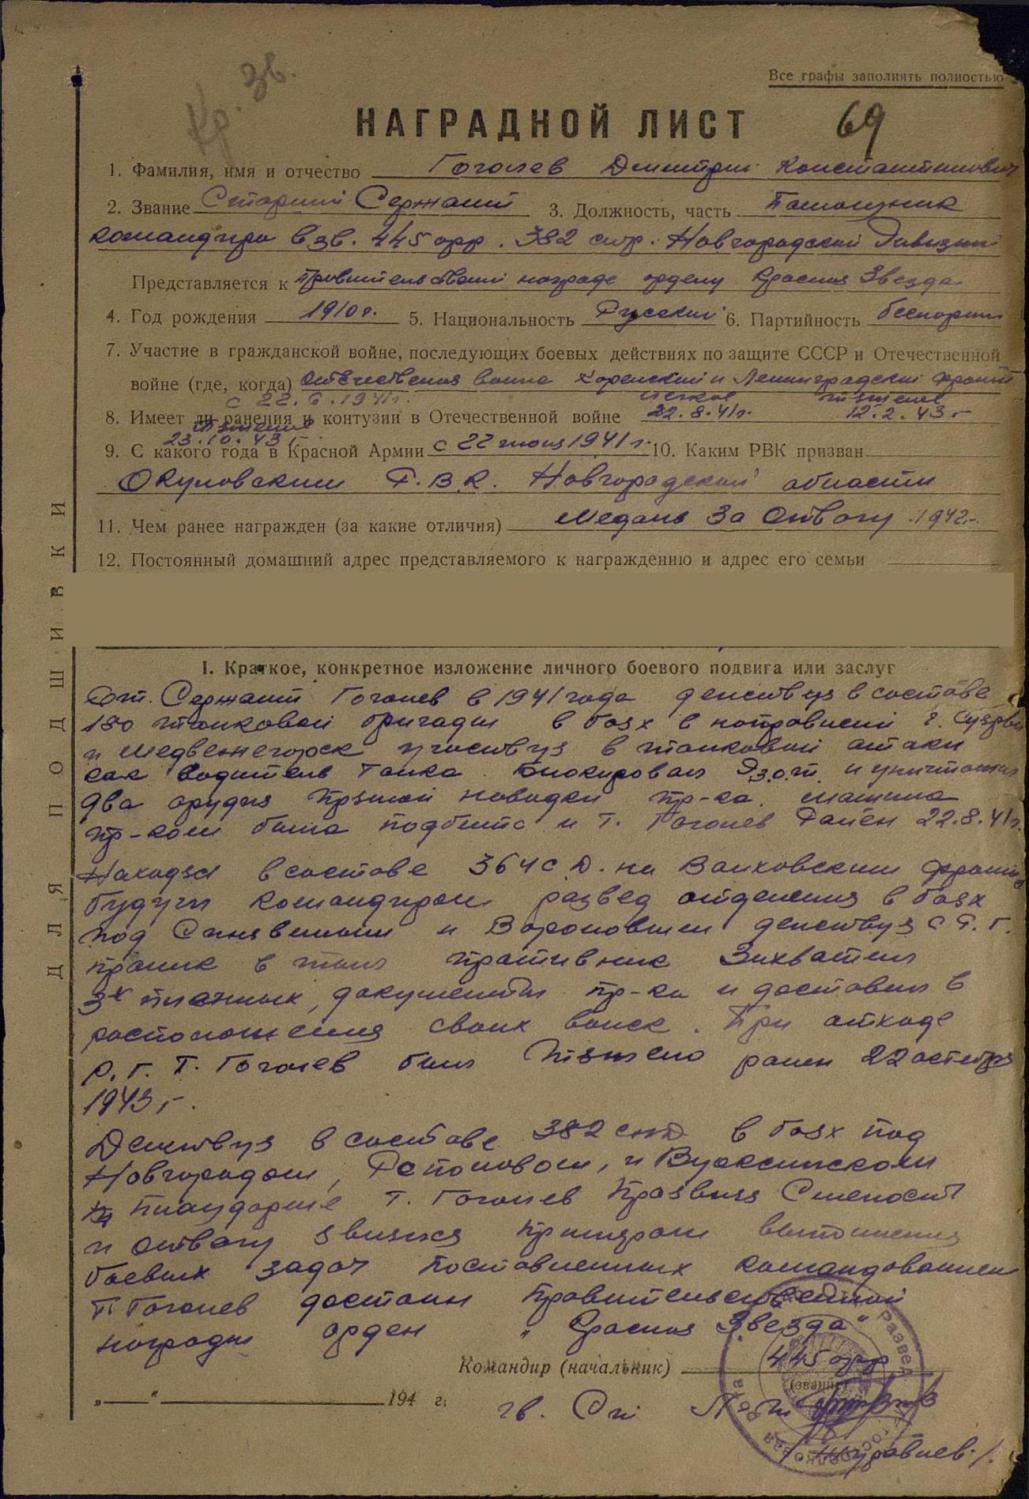 Кр. Зв.
Все графы заполнять полностью
НАГРАДНОЙ ЛИСТ 69
1. Фамилия, имя и отчество Гоголев Дмитрий Константинович
2. Звание Старший Сержант 3. Должность, часть Помощник
командира взв. 445 орр. 382 стр. Новгородской Дивизии
Представляется к правительственой награде ордену Красная Звезда
4. Год рождения 1910 г. 5. Национальность Русский 6. Партийность беспартий
7. Участие в гражданской войне, последующих боевых действиях по защите СССР и Отечественной
войне (где, когда) Отечественая война Корельский и Ленинградский фронт
с 22.6.1941г. легкое тяжелое
8. Имеет ли ранения и контузии в Отечественной войне 22.8.41г. 12.2.43 г
тяжелое
23.10.43 г
9. С какого года в Красной Армии с 22 июня 1941 г. 10. Каким РВК призван
Окуловским Р.В.К. Новгородской области
11. Чем ранее награжден (за какие отличия) Медаль За Отвагу 1942 г.
12. Постоянный домашний адрес представляемого к награждению и адрес его семьи
ДЛЯ ПОДШИВКИ
I. Краткое, конкретное изложение личного боевого подвига или заслуг
Ст. Сержант Гоголев в 1941 года действуя в составе
танковой бригады в боях в направлении г.
и Медвежегорск участвуя в танковой атаки
как водитель танка блокировал Дзот и уничтожил
два орудия прямой наводки пр-ка. машина
пр-ком была подбита и т. Гоголев Ранен 22.8.41 г.
Находясь в составе 364 с.д. на Волховским фронте
будучи командиром развед отделения в боях
под Синявеным и Вороновым действуя с Р.Г.
проник в тыл противник Захватил
3х пленных, документы пр-ка и доставил в
расположения своих войск. При отходе
Р.Г. Т. Гоголев был тяжело ранен 22 октября
1943 г.
Действуя в составе 382 сд в боях под
Новгородом, и Вуоксинском
плацдарме т. Гоголев проявил Смелость
и отвагу явился примером выполнения
боевых задач поставленных командованием
Т. Гоголев достоин Правительственной
награды орден „Красная Звезда“
Командир (начальник) 445 орр
(звание)
„ “ 194 г. гв. Ст Л-т
/Журавлев/